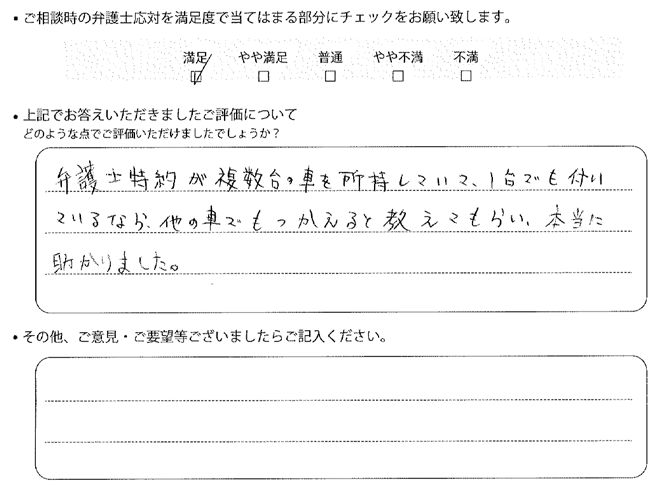 ・ご相談時の弁護士応対を満足度で当てはまる部分にチェックをお願い致します。
満足 やや満足 普通 やや不満 不満
☑ □ □ □ □
・上記でお答えいただきましたご評価について
どのような点でご評価いただけましたでしょうか？
弁護士特約が複数台の車を所持していて、1台でも付い
ているなら、他の車でもつかえると教えてもらい、本当に
助かりました。
・その他、ご意見・ご要望等ございましたらご記入ください。